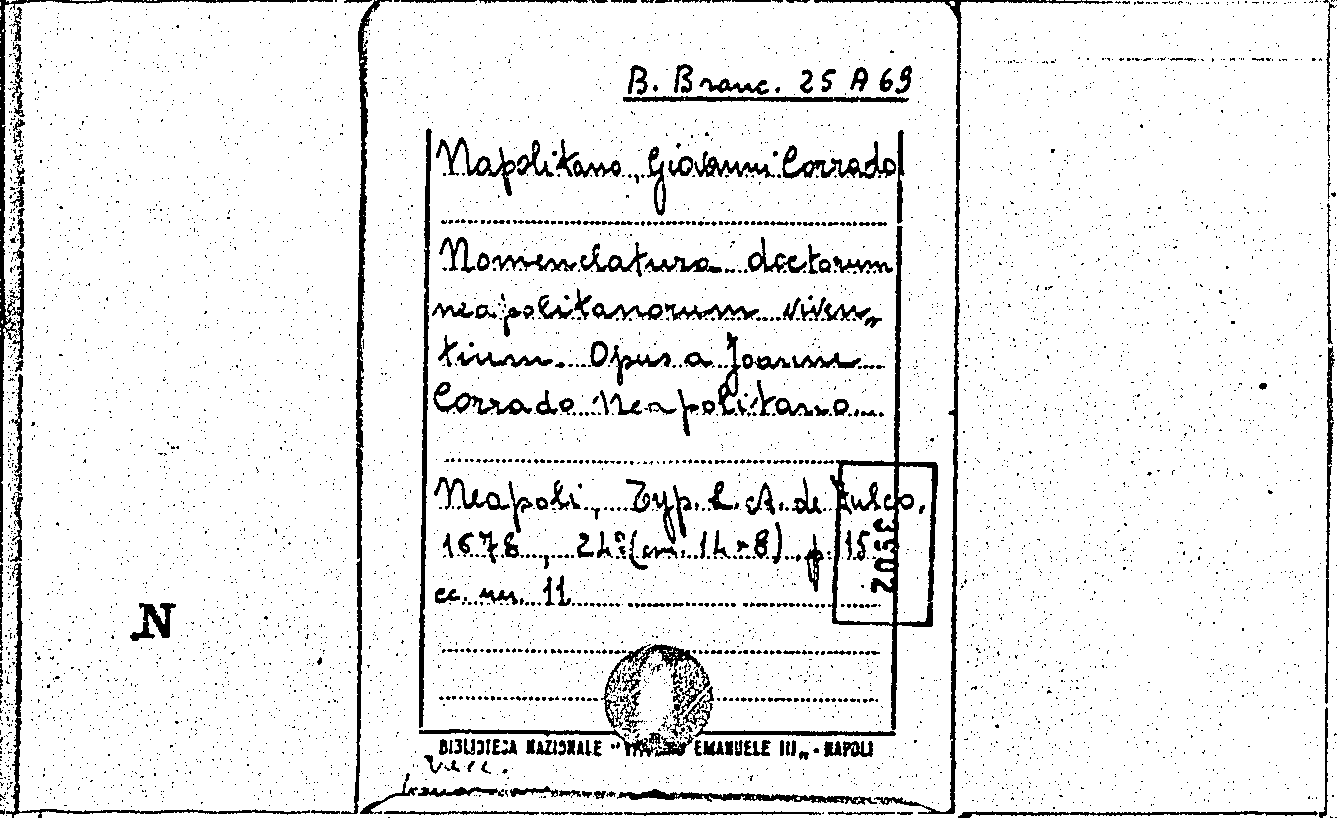 B. Branc. 25 A 69
Napolitano, Giovanni Corrado
Nomenclatura doctorum
neapolitanorum viven„
tium. Opus a Joanne
Corrado Neapolitano...
Neapoli, Typ. L. A. de Fusco,
1678, 24° (cm. 14 x 8). p. 15
cc. nn. 11
N
BIBLIOTECA NAZIONALE "VITTORIO EMANUELE III„ - NAPOLI